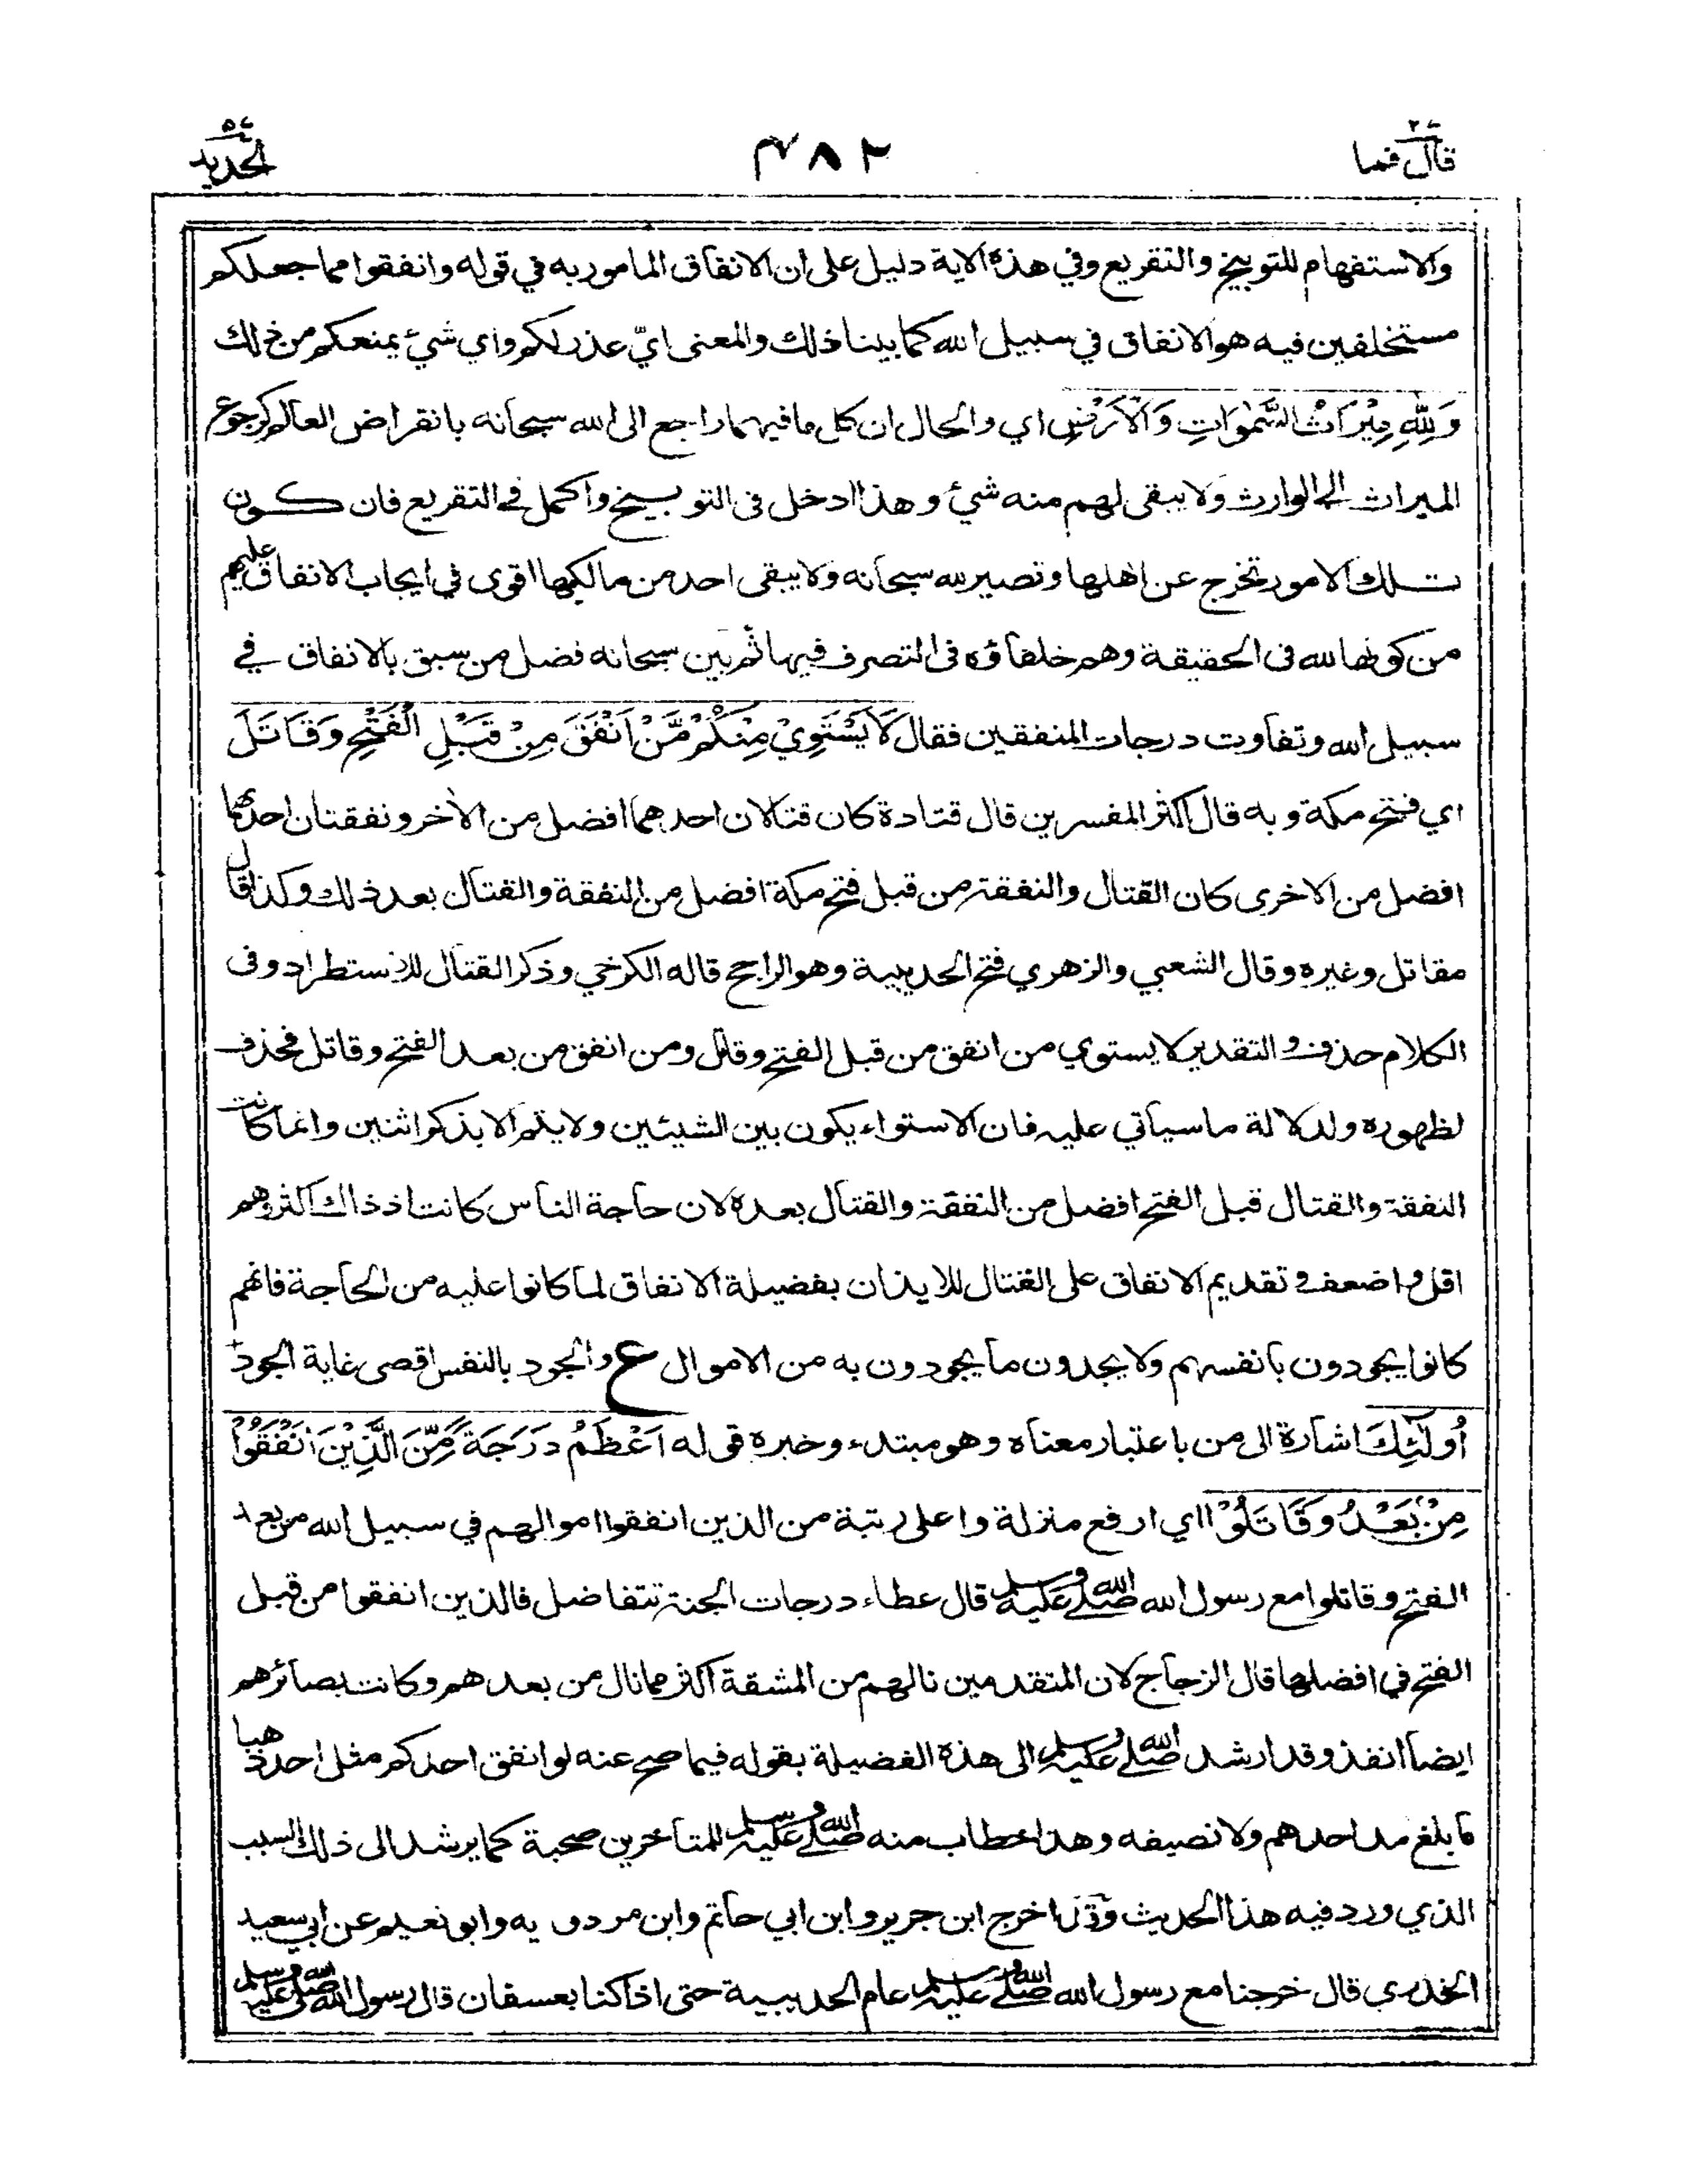 قال فما ٢٧
٤٨٢
الحديد ٥٧
والاستفهام للتوبيخ والتقريع وفي هذه الاية دليل على ان الانفاق المامور به في قوله وانفقوا مما جعلكم
مستخلفين فيه هو الانفاق في سبيل الله كما بينا ذلك والمعنى ايّ عذر لكم واي شيء يمنعكم من ذلك
وَلِلّٰهِ مِيْرَاثُ السَّمٰوَاتِ وَالْاَرْضِ اي والحال ان كل ما فيهما راجع الى الله سبحانه بانقراض العالم كرجوع
الميراث الى الوارث ولا يبقى لهم منه شيء وهذا ادخل فى التوبيخ واكمل في التقريع فان كون
تلك الامور تخرج عن اهلها وتصير لله سبحانه ولا يبقى احد من مالكيها اقوى في ايجاب الانفاق عليهم
من كونها لله فى الحقيقة وهم خلفاؤه فى التصرف فيها ثم بين سبحانه فضل من سبق بالانفاق في
سبيل الله وتفاوت درجات المنفقين فقال لَا يَسْتَوِيْ مِنْكُمْ مَّنْ اَنْفَقَ مِنْ قَبْلِ الْفَتْحِ وَقَاتَلَ
اي فتح مكة وبه قال اكثر المفسرين قال قتادة كان قتالان احدهما افضل من الاخر ونفقتان احدهما
افضل من الاخرى كان القتال والنفقة من قبل فتح مكة افضل من النفقة والقتال بعد ذلك وكذا قال
مقاتل وغيره وقال الشعبي والزهري فتح الحديبية وهو الراجح قاله الكرخي وذكر القتال للاستطراد وفى
الكلام حذف والتقدير لا يستوي من انفق من قبل الفتح وقاتل ومن انفق من بعد الفتح وقاتل فحذف
لظهوره ولدلالة ما سيأتي عليه فان الاستواء يكون بين الشيئين ولا يتم الا بذكر اثنين وانما كانت
النفقة والقتال قبل الفتح افضل من النفقة والقتال بعده لان حاجة الناس كانت اذ ذاك اكثر وهم
اقل واضعف وتقديم الانفاق على القتال للايذان بفضيلة الانفاق لما كانوا عليه من الحاجة فانهم
كانوا يجودون بانفسهم ولا يجدون ما يجودون به من الاموال ع والجود بالنفس اقصى غاية الجود
أُولٰٓئِكَ اشارة الى من باعتبار معناه وهو مبتدء وخبره قوله اَعْظَمُ دَرَجَةً مِّنَ الَّذِيْنَ اَنْفَقُوْا
مِنْ بَعْدُ وَقَاتَلُوْا اي ارفع منزلة واعلى رتبة من الذين انفقوا اموالهم في سبيل الله من بعد
الفتح وقاتلوا مع رسول الله صلى الله عليه وسلم قال عطاء درجات الجنة تتفاضل فالذين انفقوا من قبل
الفتح في افضلها قال الزجاج لان المتقدمين نالهم من المشقة اكثر مما نال من بعدهم وكانت بصائرهم
ايضا انفذ وقد ارشد صلى الله عليه وسلم الى هذه الفضيلة بقوله فيما صح عنه لو انفق احدكم مثل احد ذهبا
ما بلغ مد احدهم ولا نصيفه وهذا خطاب منه صلى الله عليه وسلم للمتأخرين صحبة كما يرشد الى ذلك السبب
الذي ورد فيه هذا الحديث وقد اخرج ابن جرير وابن ابي حاتم وابن مردويه وابو نعيم عن ابي سعيد
الخدري قال خرجنا مع رسول الله صلى الله عليه وسلم عام الحديبية حتى اذا كنا بعسفان قال رسول الله صلى الله عليه وسلم